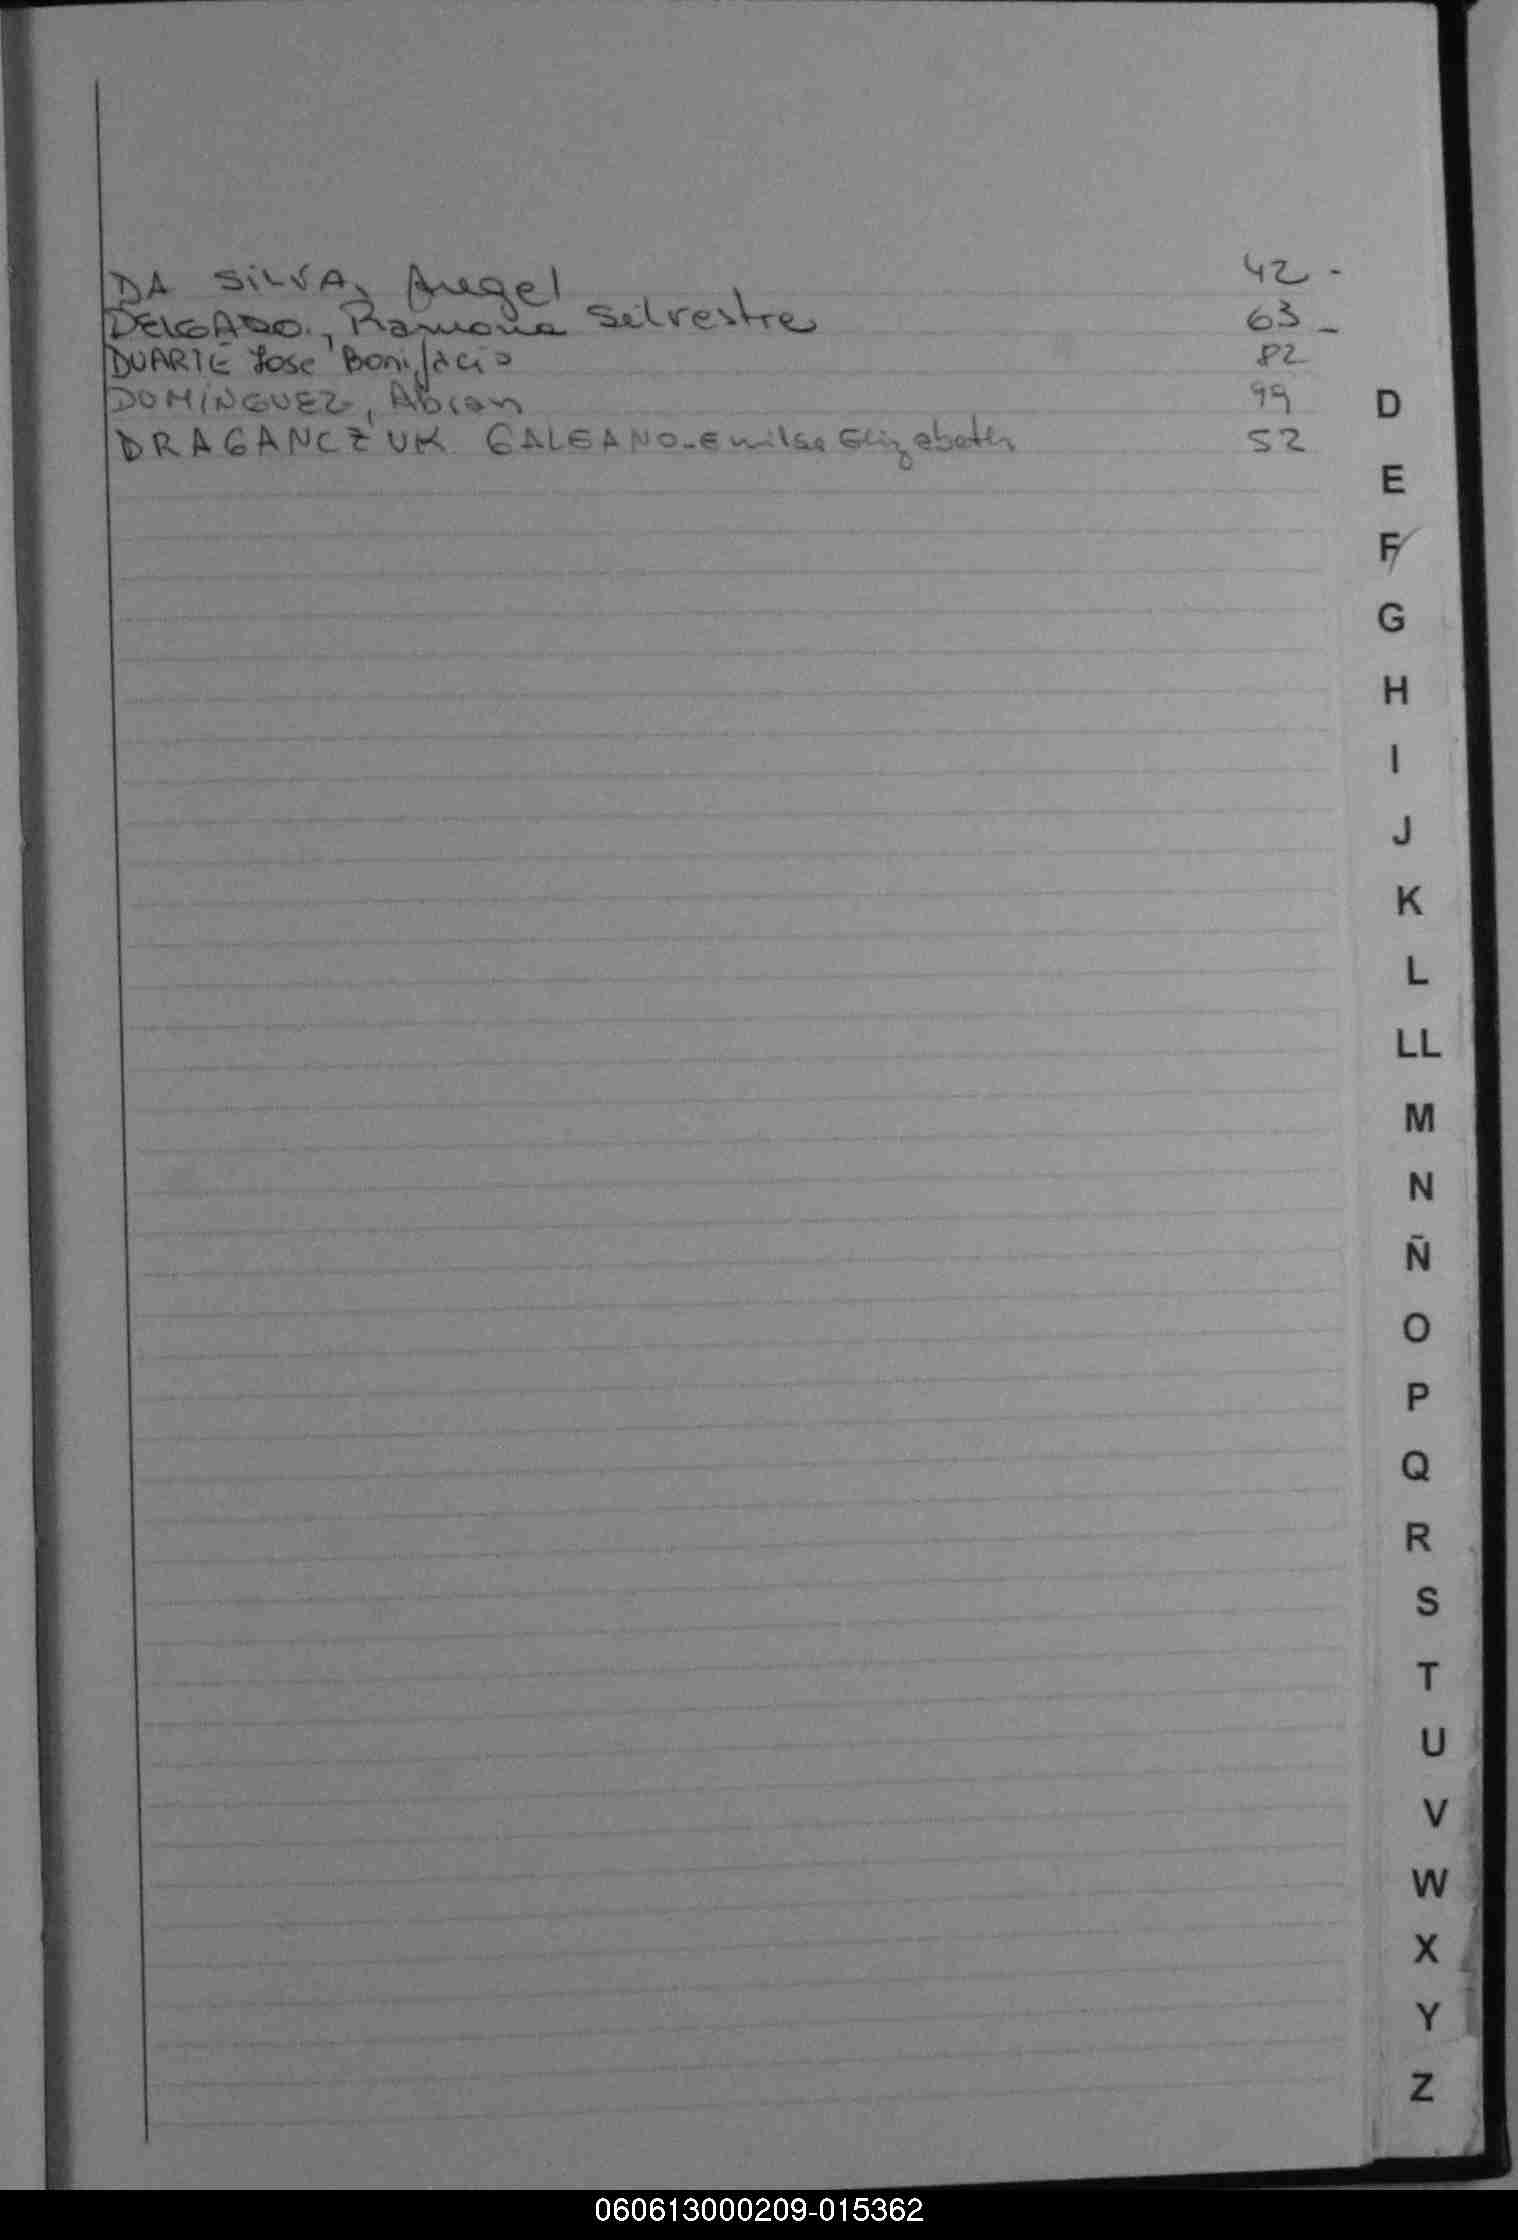 DA SILVA, Angel 42 -
DELGADO, Ramona Silvestre 63 -
DUARTE Jose Bonifacio 82
DOMÍNGUEZ, Abian 99
DRAGANCZUK GALEANO - Emilse Elizabeth 52
D
E
F
G
H
I
J
K
L
LL
M
N
Ñ
O
P
Q
R
S
T
U
V
W
X
Y
Z
060613000209-015362